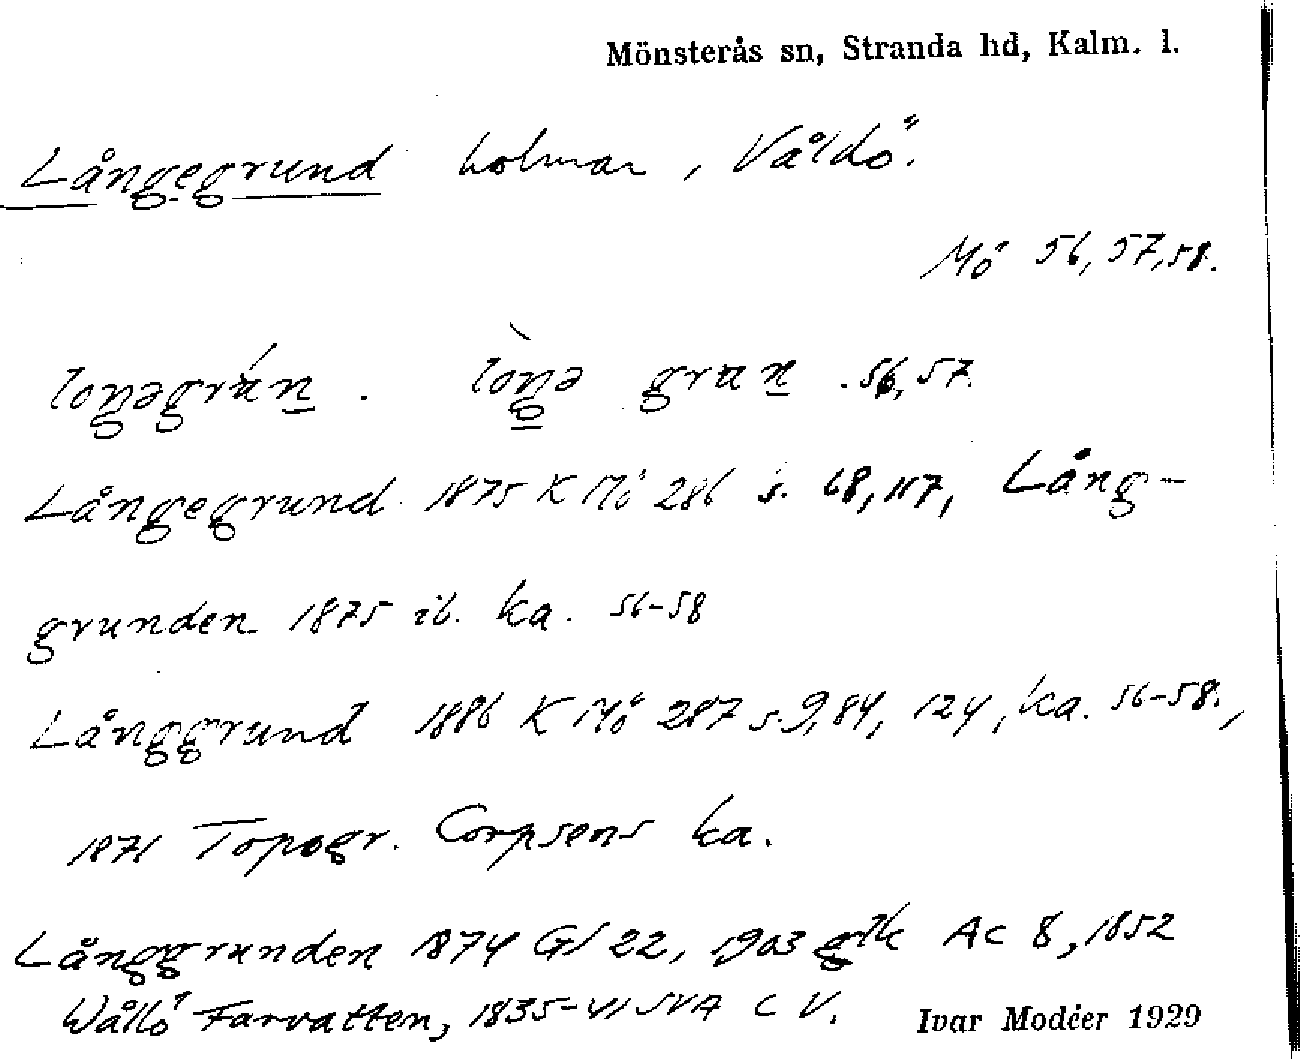 Mönsterås sn, Stranda hd, Kalm. l.
Långegrund holmar, Våldö.
Mö 56, 57, 58.
loŋəgrún. lòŋə grun. 56, 57.
Långegrund 1875 K Mö 286 s. 68, 117, Lång-
grunden 1875 ib. ka. 56-58
Långgrund 1886 K Mö 287 s. 9, 84, 124, ka. 56-58.,
1871 Topogr. Corpsens ka.
Långgrunden 1874 Gl 22, 1903 gk Ac 8, 1852
Wållö Farvatten, 1835-41 SVA C V.
Ivar Modéer 1929